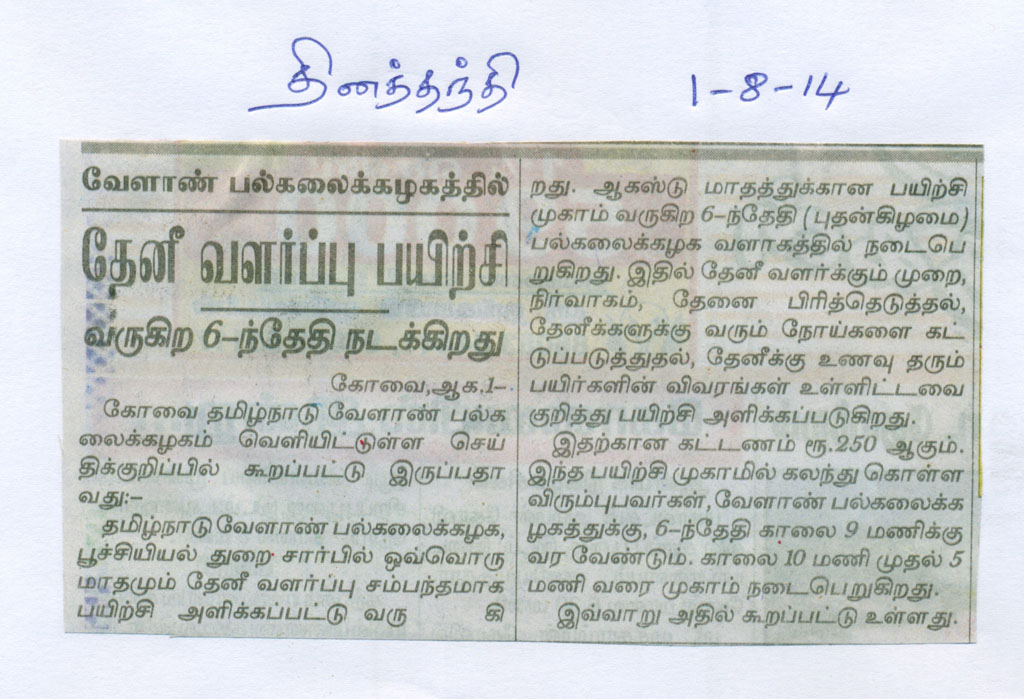 தினத்தந்தி 1-8-14
வேளாண் பல்கலைக்கழகத்தில்
தேனீ வளர்ப்பு பயிற்சி
வருகிற 6-ந்தேதி நடக்கிறது
கோவை,ஆக.1-
கோவை தமிழ்நாடு வேளாண் பல்க
லைக்கழகம் வெளியிட்டுள்ள செய்
திக்குறிப்பில் கூறப்பட்டு இருப்பதா
வது:-
தமிழ்நாடு வேளாண் பல்கலைக்கழக,
பூச்சியியல் துறை சார்பில் ஒவ்வொரு
மாதமும் தேனீ வளர்ப்பு சம்பந்தமாக
பயிற்சி அளிக்கப்பட்டு வரு கி
றது. ஆகஸ்டு மாதத்துக்கான பயிற்சி
முகாம் வருகிற 6-ந்தேதி (புதன்கிழமை)
பல்கலைக்கழக வளாகத்தில் நடைபெ
றுகிறது. இதில் தேனீ வளர்க்கும் முறை,
நிர்வாகம், தேனை பிரித்தெடுத்தல்,
தேனீக்களுக்கு வரும் நோய்களை கட்
டுப்படுத்துதல், தேனீக்கு உணவு தரும்
பயிர்களின் விவரங்கள் உள்ளிட்டவை
குறித்து பயிற்சி அளிக்கப்படுகிறது.
இதற்கான கட்டணம் ரூ.250 ஆகும்.
இந்த பயிற்சி முகாமில் கலந்து கொள்ள
விரும்புபவர்கள்,வேளாண் பல்கலைக்க
ழகத்துக்கு, 6-ந்தேதி காலை 9 மணிக்கு
வர வேண்டும். காலை 10 மணி முதல் 5
மணி வரை முகாம் நடைபெறுகிறது.
இவ்வாறு அதில் கூறப்பட்டு உள்ளது.